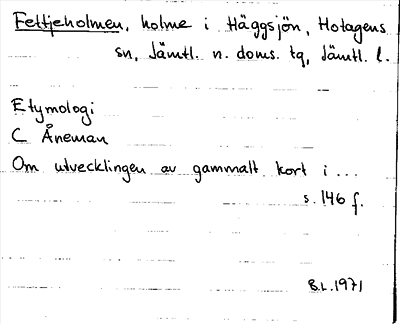 Fettjeholmen, holme i Häggsjön, Hotagens
sn, Jämtl. n. doms. tg, Jämtl. l.
Etymologi
C Åneman
Om utvecklingen av gammalt kort i ...
s. 146 f.
B.L. 1971